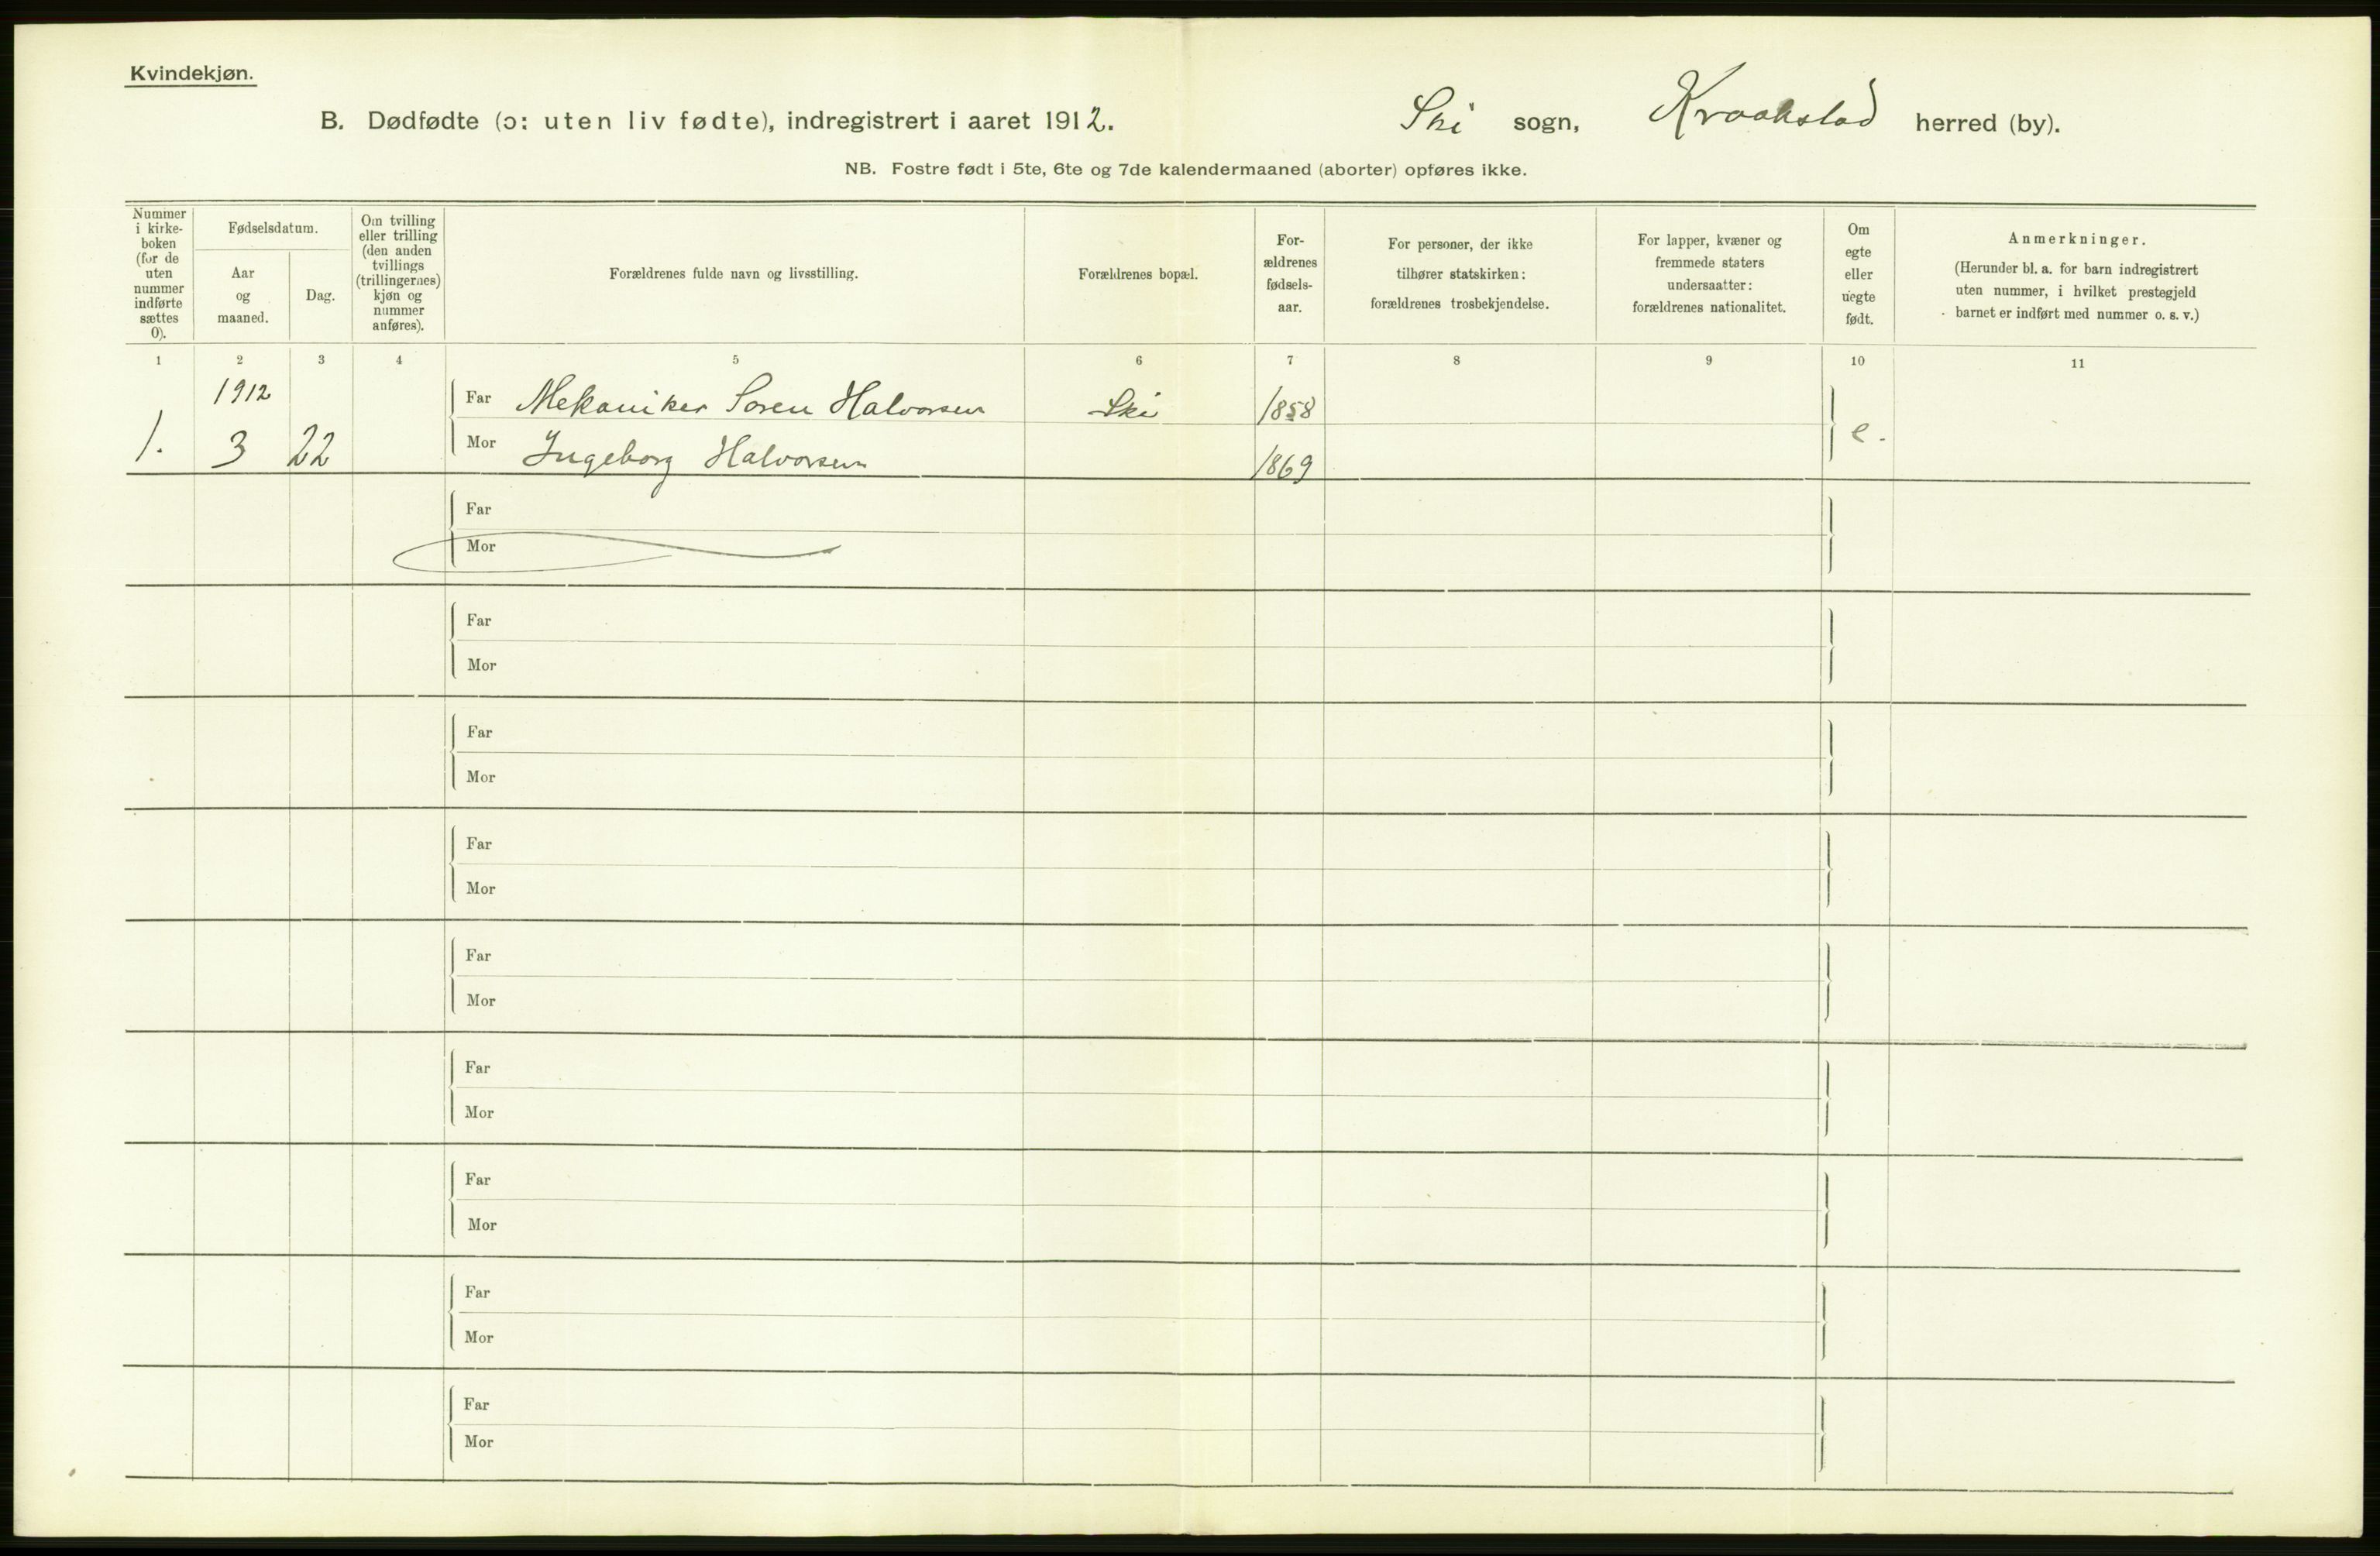 Kvindekjøn.
B. Dødfødte (ɔ: uten liv fødte), indregistrert i aaret 1912. Ski sogn, Kraakstad herred (by).
NB. Fostre født i 5te, 6te og 7de kalendermaaned (aborter) opføres ikke.
Nummer
i kirke-
boken
(for de
uten
nummer
indførte
sættes
0).
Fødselsdatum.
Aar
og
maaned.
Dag.
Om tvilling
eller trilling
(den anden
tvillings
(trillingernes)
kjøn og
nummer
anføres).
Forældrenes fulde navn og livsstilling.
Forældrenes bopæl.
For-
ældrenes
fødsels-
aar.
For personer, der ikke
tilhører statskirken:
forældrenes trosbekjendelse.
For lapper, kvæner og
fremmede staters
undersaatter:
forældrenes nationalitet.
Om
egte
eller
uegte
født.
Anmerkninger.
(Herunder bl. a. for barn indregistrert
uten nummer, i hvilket prestegjeld
barnet er indført med nummer o. s. v.)
1 2 3 4 5 6 7 8 9 10 11
1912
Far Mekaniker Soren Halvorsen Ski 1858
1. 3 22 Mor Ingeborg Halvorsen 1869 e.
Far
Mor
Far
Mor
Far
Mor
Far
Mor
Far
Mor
Far
Mor
Far
Mor
Far
Mor
Far
Mor